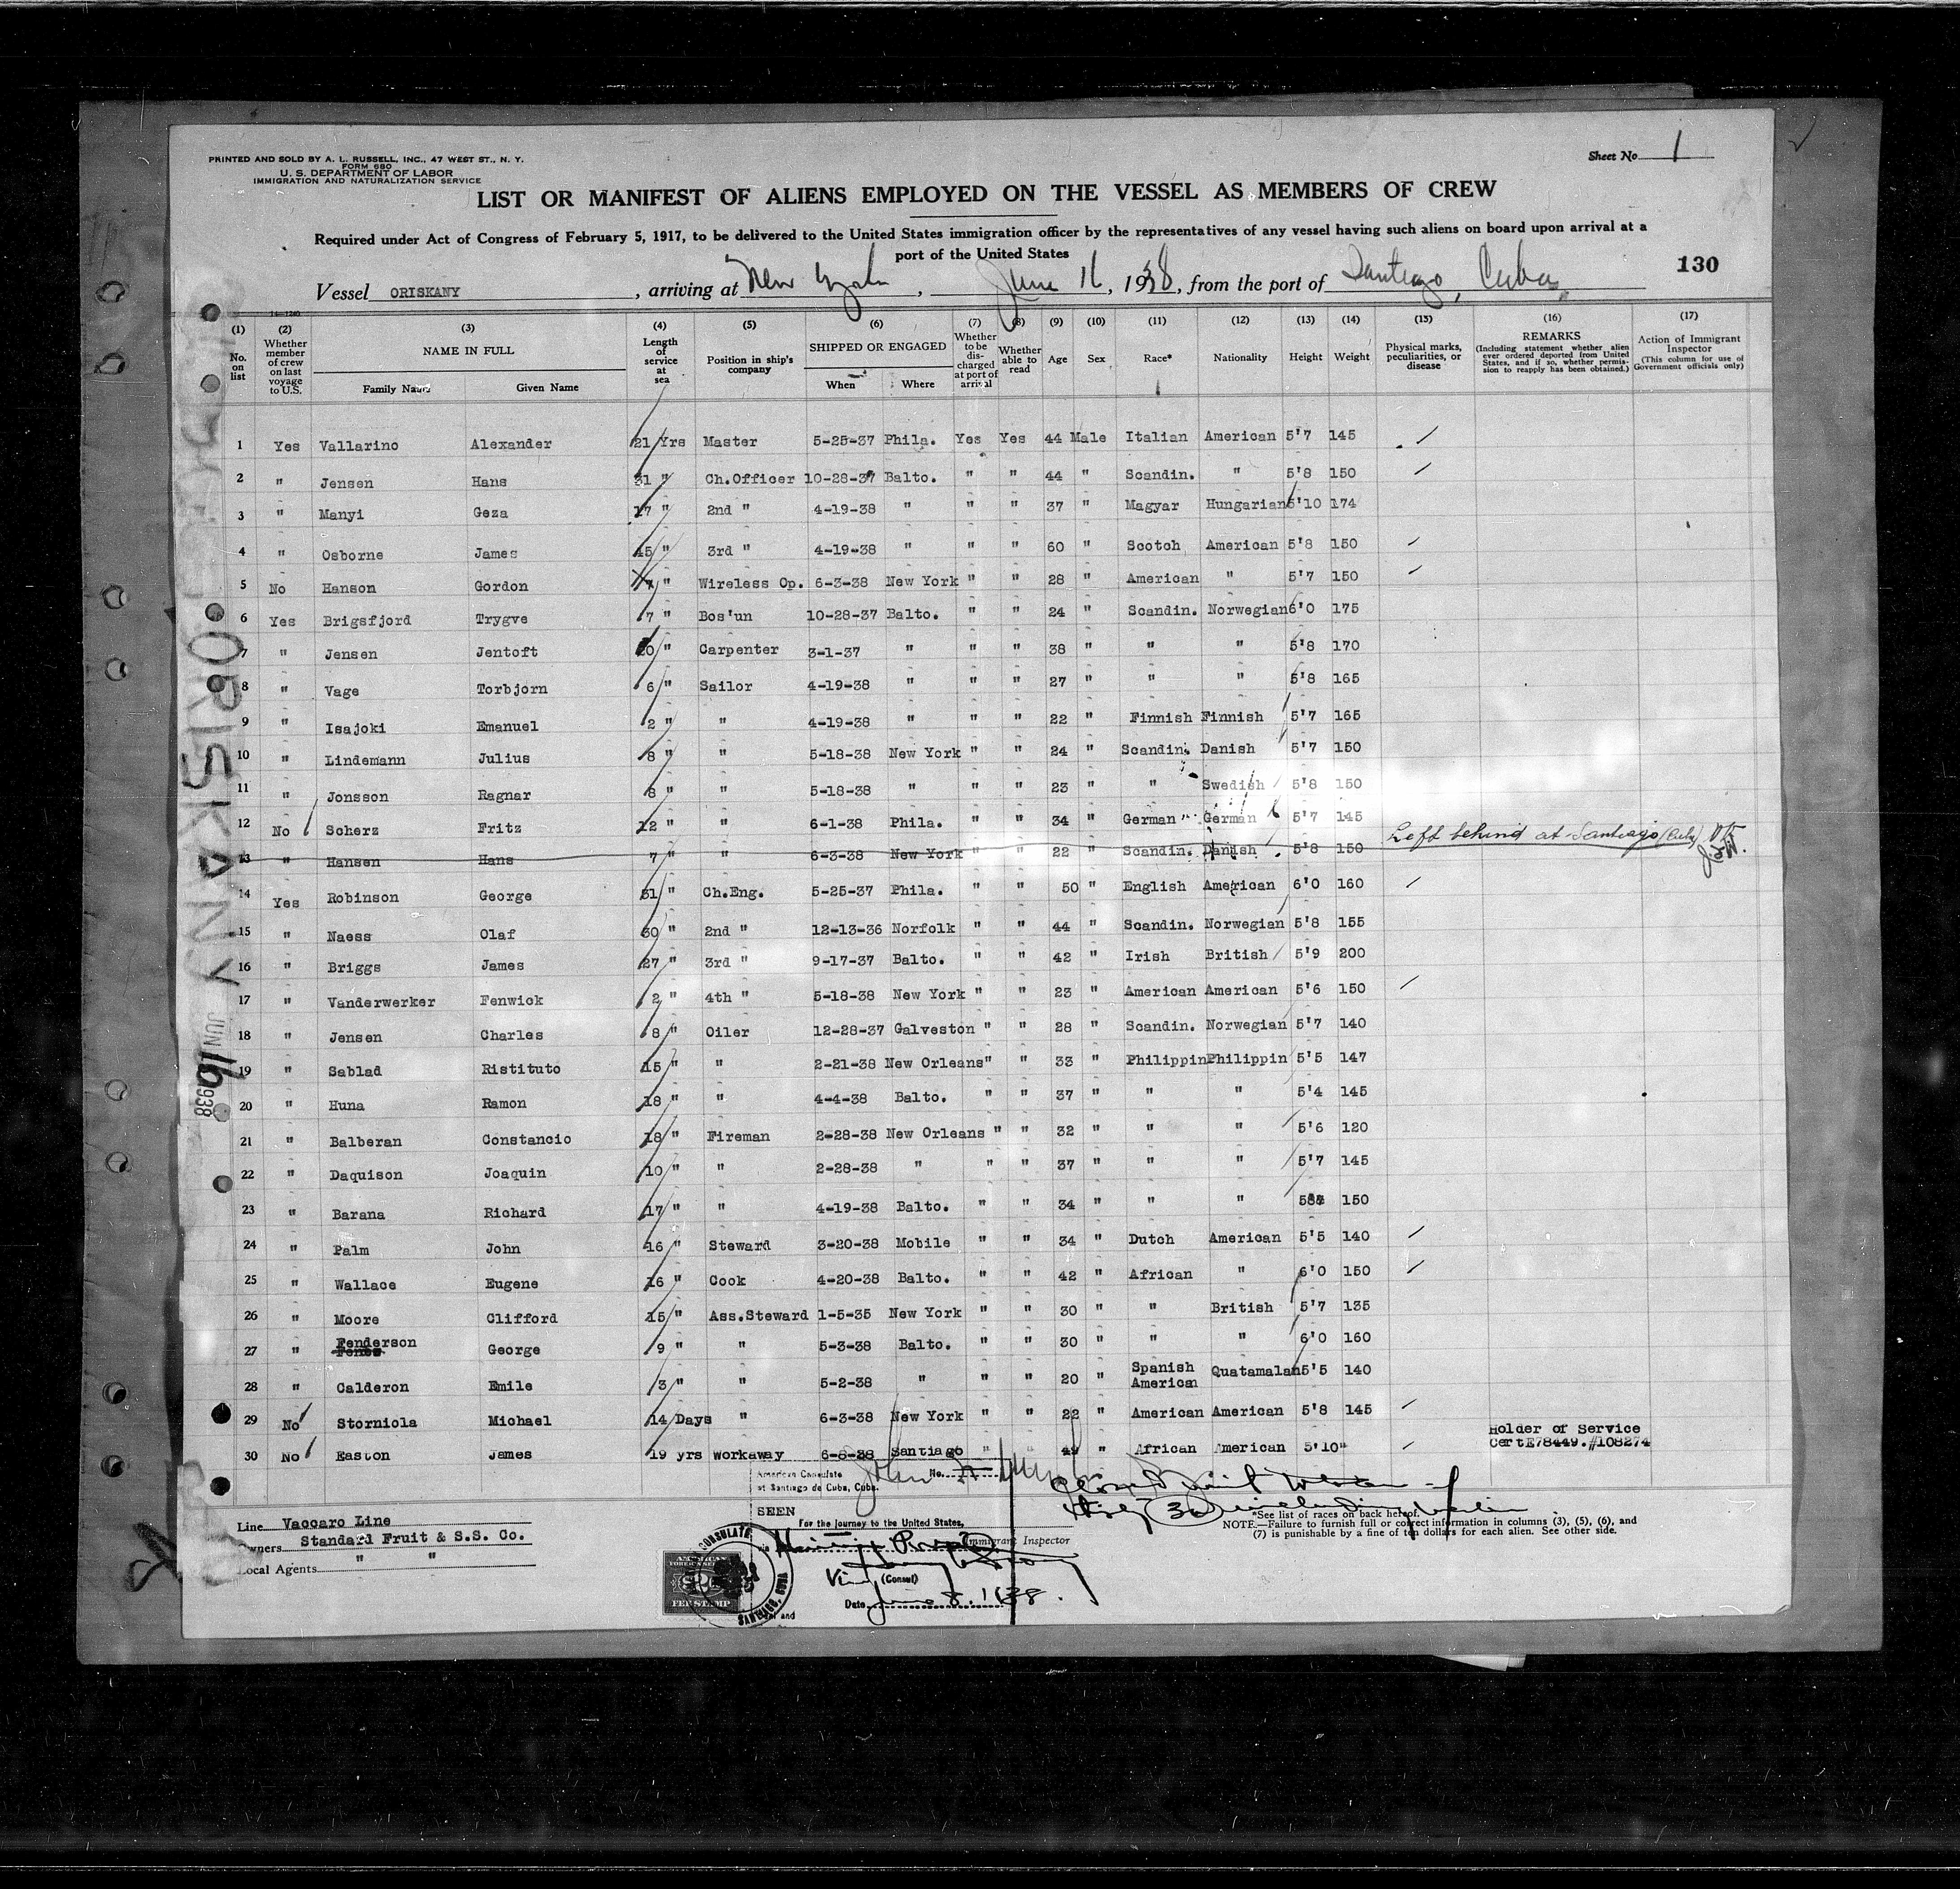 Sheet No 1
PRINTED AND SOLD BY A. L. RUSSELL, INC., 47 WEST ST., N. Y.
FORM 680
U. S. DEPARTMENT OF LABOR
IMMIGRATION AND NATURALIZATION SERVICE
LIST OR MANIFEST OF ALIENS EMPLOYED ON THE VESSEL AS MEMBERS OF CREW
Required under Act of Congress of February 5, 1917, to be delivered to the United States immigration officer by the representatives of any vessel having such aliens on board upon arrival at a
port of the United States
130
Vessel ORISKANY, arriving at New York, June 16, 1938, from the port of Santiago, Cuba
14-1240
(1) (2) (3) (4) (5) (6) (7) (8) (9) (10) (11) (12) (13) (14) (15) (16) (17)
No. on list Whether member of crew on last voyage to U.S. NAME IN FULL Family Name Given Name Length of service at sea Position in ship's company SHIPPED OR ENGAGED When Where Whether to be discharged at port of arrival Whether able to read Age Sex Race* Nationality Height Weight Physical marks, peculiarities, or disease REMARKS (Including statement whether alien ever ordered deported from United States, and if so, whether permission to reapply has been obtained.) Action of Immigrant Inspector (This column for use of Government officials only)
1 Yes Vallarino Alexander 21 Yrs Master 5-25-37 Phila. Yes Yes 44 Male Italian American 5'7 145
2 " Jensen Hans 31 " Ch.Officer 10-28-37 Balto. " " 44 " Scandin. " 5'8 150
3 " Manyi Geza 17 " 2nd " 4-19-38 " " " 37 " Magyar Hungarian 5'10 174
4 " Osborne James 45 " 3rd " 4-19-38 " " " 60 " Scotch American 5'8 150
5 No Hanson Gordon 7 " Wireless Op. 6-3-38 New York " " 28 " American " 5'7 150
6 Yes Brigsfjord Trygve 7 " Bos'un 10-28-37 Balto. " " 24 " Scandin. Norwegian 6'0 175
7 " Jensen Jentoft 20 " Carpenter 3-1-37 " " " 38 " " " 5'8 170
8 " Vage Torbjorn 6 " Sailor 4-19-38 " " " 27 " " " 5'8 165
9 " Isajoki Emanuel 2 " " 4-19-38 " " " 22 " Finnish Finnish 5'7 165
10 " Lindemann Julius 8 " " 5-18-38 New York " " 24 " Scandin. Danish 5'7 150
11 " Jonsson Ragnar 8 " " 5-18-38 " " " 23 " " Swedish 5'8 150
12 No Scherz Fritz 12 " " 6-1-38 Phila. " " 34 " German German 5'7 145
13 " Hansen Hans 7 " " 6-3-38 New York " " 22 " Scandin. Danish 5'8 150 Left behind at Santiago (Cuba)
14 Yes Robinson George 31 " Ch.Eng. 5-25-37 Phila. " " 50 " English American 6'0 160
15 " Naess Olaf 30 " 2nd " 12-13-36 Norfolk " " 44 " Scandin. Norwegian 5'8 155
16 " Briggs James 27 " 3rd " 9-17-37 Balto. " " 42 " Irish British 5'9 200
17 " Vanderwerker Fenwick 2 " 4th " 5-18-38 New York " " 23 " American American 5'6 150
18 " Jensen Charles 8 " Oiler 12-28-37 Galveston " " 28 " Scandin. Norwegian 5'7 140
19 " Sablad Ristituto 15 " " 2-21-38 New Orleans " " 33 Philippin Philippin 5'5 147
20 " Huna Ramon 18 " " 4-4-38 Balto. " " 37 " " " 5'4 145
21 " Balberan Constancio 18 " Fireman 2-28-38 New Orleans " " 32 " " " 5'6 120
22 " Daquison Joaquin 10 " " 2-28-38 " " " 37 " " " 5'7 145
23 " Barana Richard 17 " " 4-19-38 Balto. " " 34 " " " 150
24 " Palm John 16 " Steward 3-20-38 Mobile " " 34 " Dutch American 5'5 140
25 " Wallace Eugene 16 " Cook 4-20-38 Balto. " " 42 " African " 6'0 150
26 " Moore Clifford 15 " Ass.Steward 1-5-35 New York " " 30 " " British 5'7 135
27 " Fenderson George 9 " " 5-3-38 Balto. " " 30 " " " 6'0 160
28 " Calderon Emile 3 " " 5-2-38 " " " 20 " Spanish American Quatamalan 5'5 140
29 No Storniola Michael 14 Days " 6-3-38 New York " " 22 " American American 5'8 145
30 No Easton James 19 yrs workaway 6-8-38 Santiago " " 49 " African American 5'10" Holder of Service Cert E78449.#108274
ORISKANY JUN 16 1938
American Consulate
at Santiago de Cuba, Cuba. No.
SEEN
For the journey to the United States,
Immigrant Inspector
(Consul)
Date June 8. 1938.
AMERICAN CONSULATE SANTIAGO, CUBA
FEE STAMP
*See list of races on back hereof.
NOTE.—Failure to furnish full or correct information in columns (3), (5), (6), and
(7) is punishable by a fine of ten dollars for each alien. See other side.
Line Vaccaro Line
Owners Standard Fruit & S.S. Co.
Local Agents " "